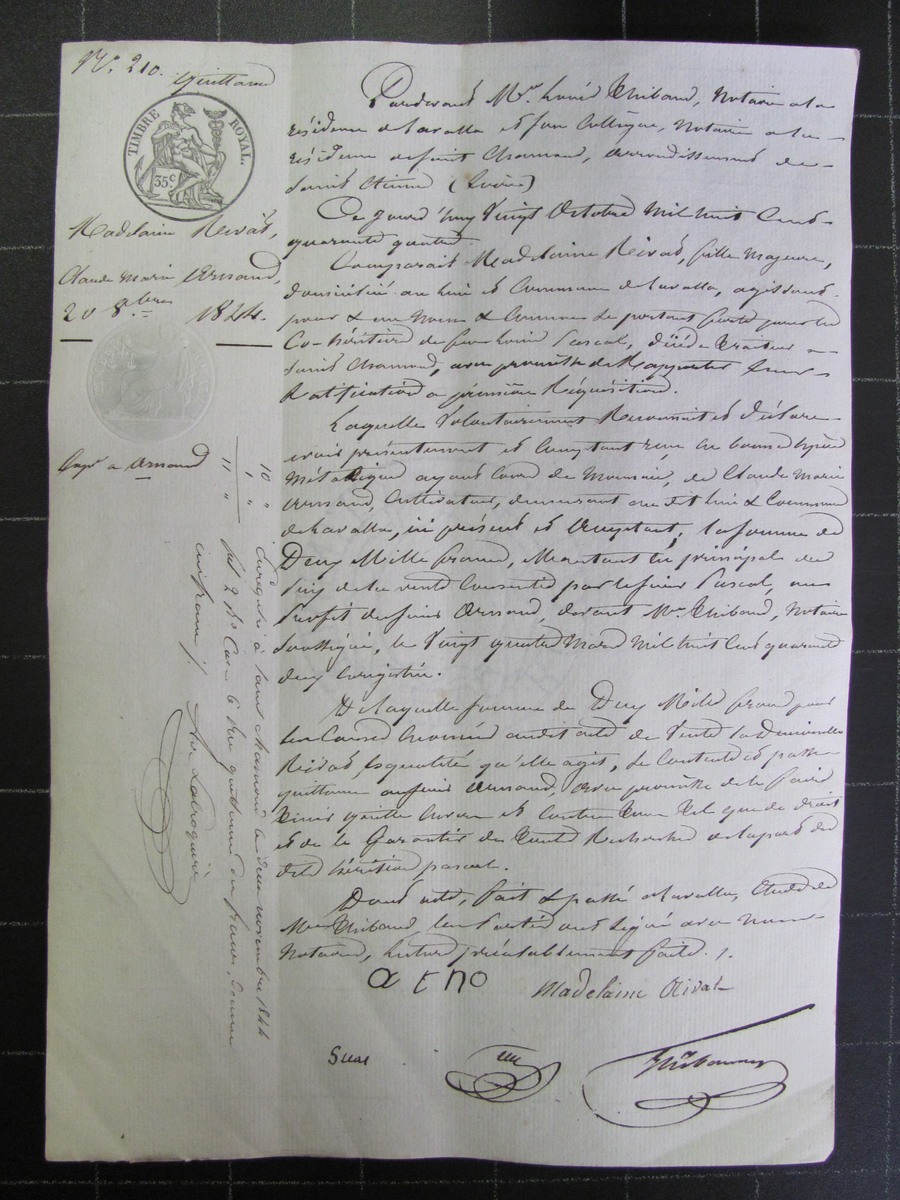 N.° 210.
Quittance
TIMBRE ROYAL.
35c
Madelaine Rivat,
Claude Marie Arnaud,
20 8.bre 1844.
Exp.on a Arnaud
Pardevant M.e Louis Thibaud, Notaire a la
résidence de Lavalla et son Collègue, Notaire a la
résidence de Saint Chamond, arrondissement de
Saint Etienne (Loire)
Ce Jourd'huy Vingt Octobre Mil huit Cent
quarante quatre.
Comparait Madelaine Rivat, fille Majeure,
domiciliée au lieu et Commune de Lavalla, agissant
pour & au Nom & Comme se portant forte pour les
Co-héritiers de feu Louis Pascal, décédé
Saint Chamond, avec promesse de Rapporter leur
Ratification a première Réquisition.
Laquelle Volontairement Reconnait et déclare
avoir présentement et Comptant reçu en bonnes espèces
Métallique ayant Cour de Monnaie, de Claude Marie
Arnaud, Cultivateur, demeurant au dit lieu & Commune
de Lavalla, ici présent et Acceptant, la somme de
Deux Mille francs, Montant en principal du
prix de la vente Consentie par le sieur Pascal, au
Profit du sieur Arnaud, devant M.e Thibaud, Notaire
Soussigné, le Vingt quatre Mars Mil huit Cent quarante
deux Enregistrée.
De laquelle somme de Deux Mille francs pour
les Causes énoncées audit acte de Vente la Demoiselle
Rivat, esqualité qu'elle agit, se Contente et passe
quittance au sieur Arnaud, avec promesse de le faire
tenir quitte envers et Contre tous tel que de droit
et de le Garantir de toute Recherche de la part des
dits héritiers pascal.
Dont acte, fait & passé a Lavalla, Etude de
M.e Thibaud, les Parties ont Signé avec nous
Notaires, lecture préalablement faite.
arno
Madelaine Rivat
Thibaud
10 "
1 "
11 "
Enregistré à Saint Chamond le deux novembre 1844
fol. 2 R.o Case 6 Reçu dix francs, décime
un franc.